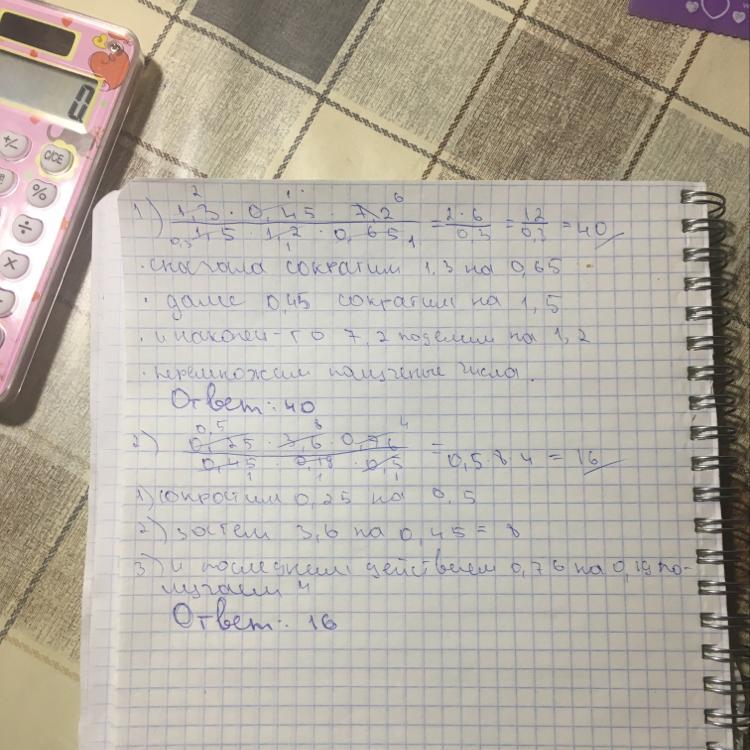 2 1 6
1) 1,3 · 0,45 · 7,2 / 1,5 · 1,2 · 0,65 = 2·6 / 0,3 = 12 / 0,3 = 40
0,3 1 1
· сначала сократим 1,3 на 0,65
· далее 0,45 сократим на 1,5
· и наконец-то 7,2 поделим на 1,2
· перемножаем полученые числа.
Ответ: 40
0,5 8 4
2) 0,25 · 3,6 · 0,76 / 0,45 · 0,19 · 0,5 = 0,5·8 4 = 16
1 1 1
1) сократим 0,25 на 0,5
2) затем 3,6 на 0,45 = 8
3) и последним действием 0,76 на 0,19 по-
лучаем 4
Ответ: 16
0
+/-
C/CE
%
÷
×